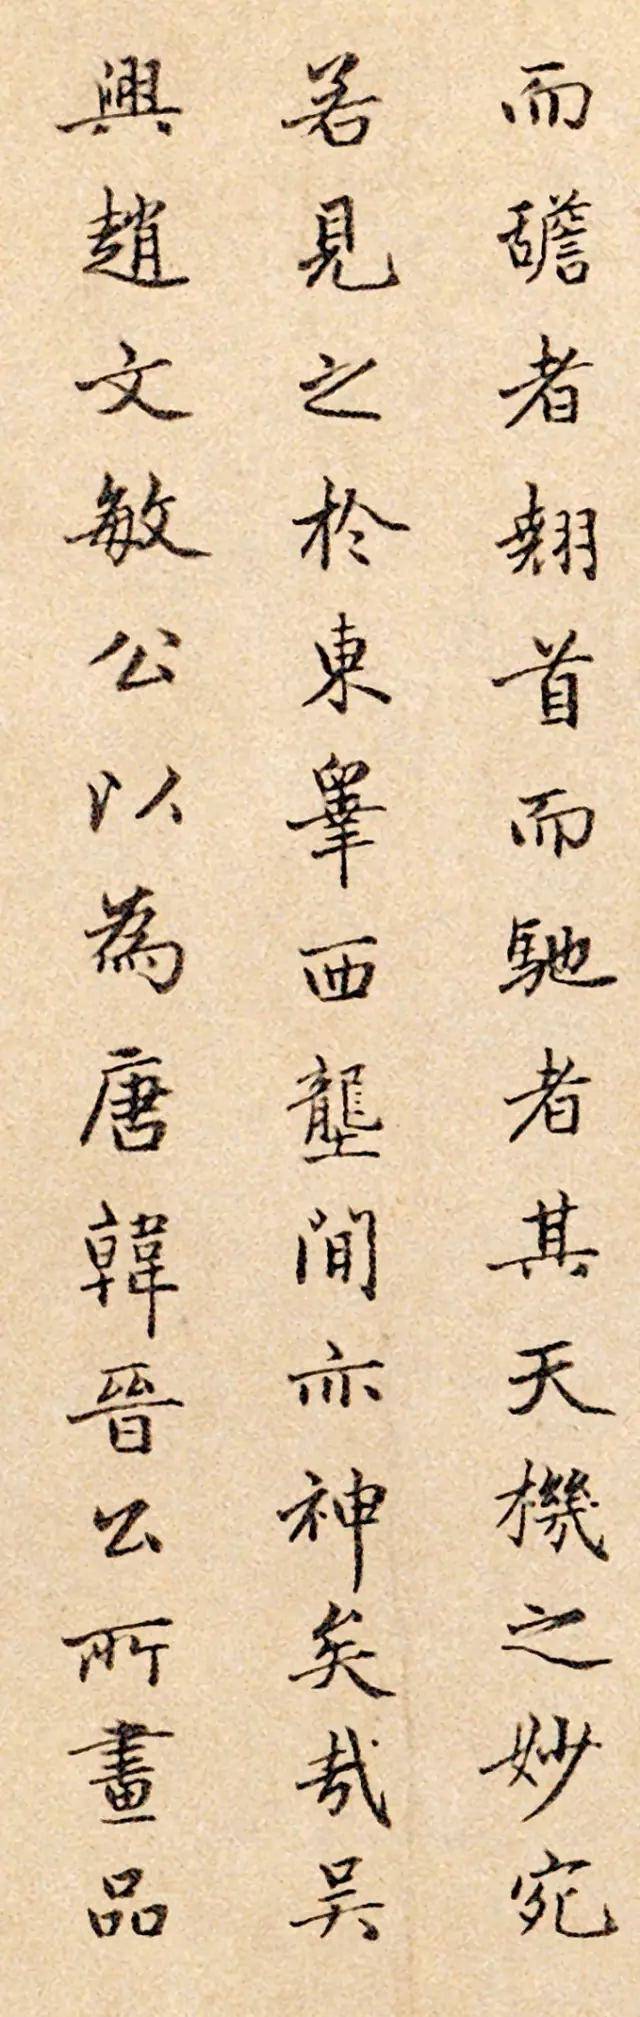 而舚者翹首而馳者其天機之妙宛
若見之於東臯西壟間亦神矣哉吳
興趙文敏公以為唐韓晉公所畫品